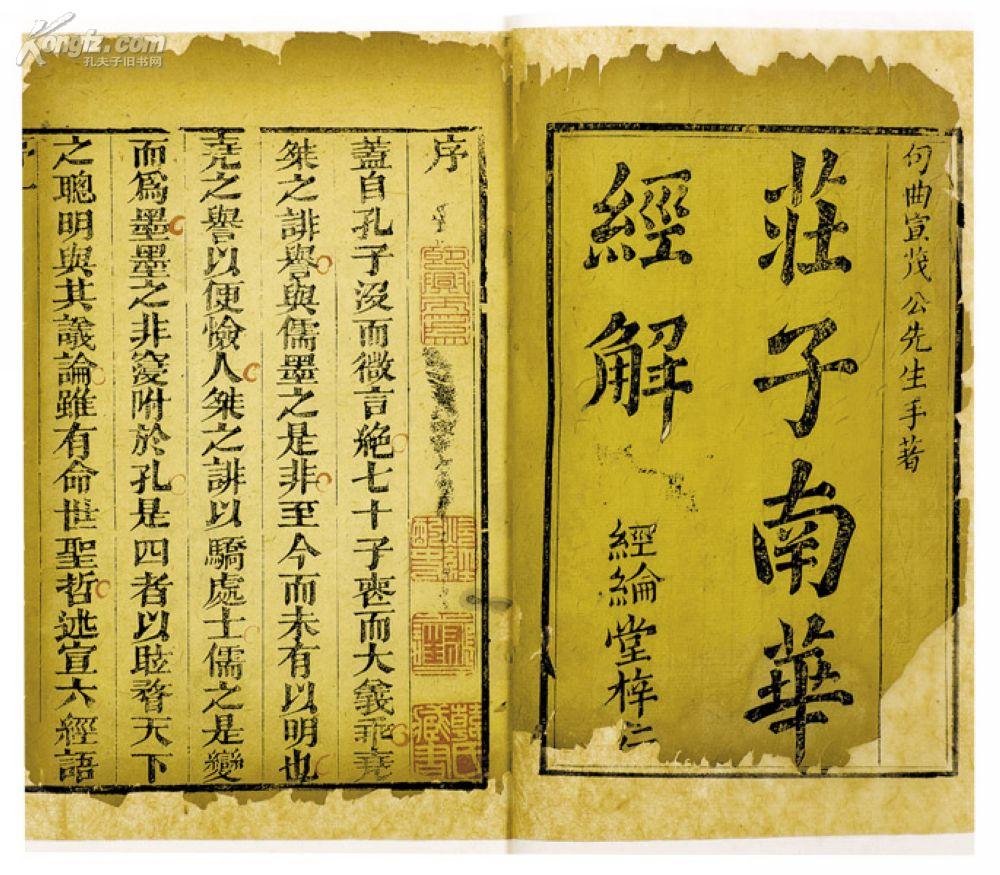 句曲宣茂公先生手著
莊子南華
經解
經綸堂梓行
序
蓋自孔子沒而微言絶七十子喪而大義乖堯
桀之誹譽與儒墨之是非至今而未有以明也
堯之譽以便憸人桀之誹以驕處士儒之是變
而爲墨墨之非変附於孔是四者以眩瞀天下
之聰明與其議論雖有命世聖哲述宣六經語
韓氏藏書
Kongfz.com
孔夫子旧书网